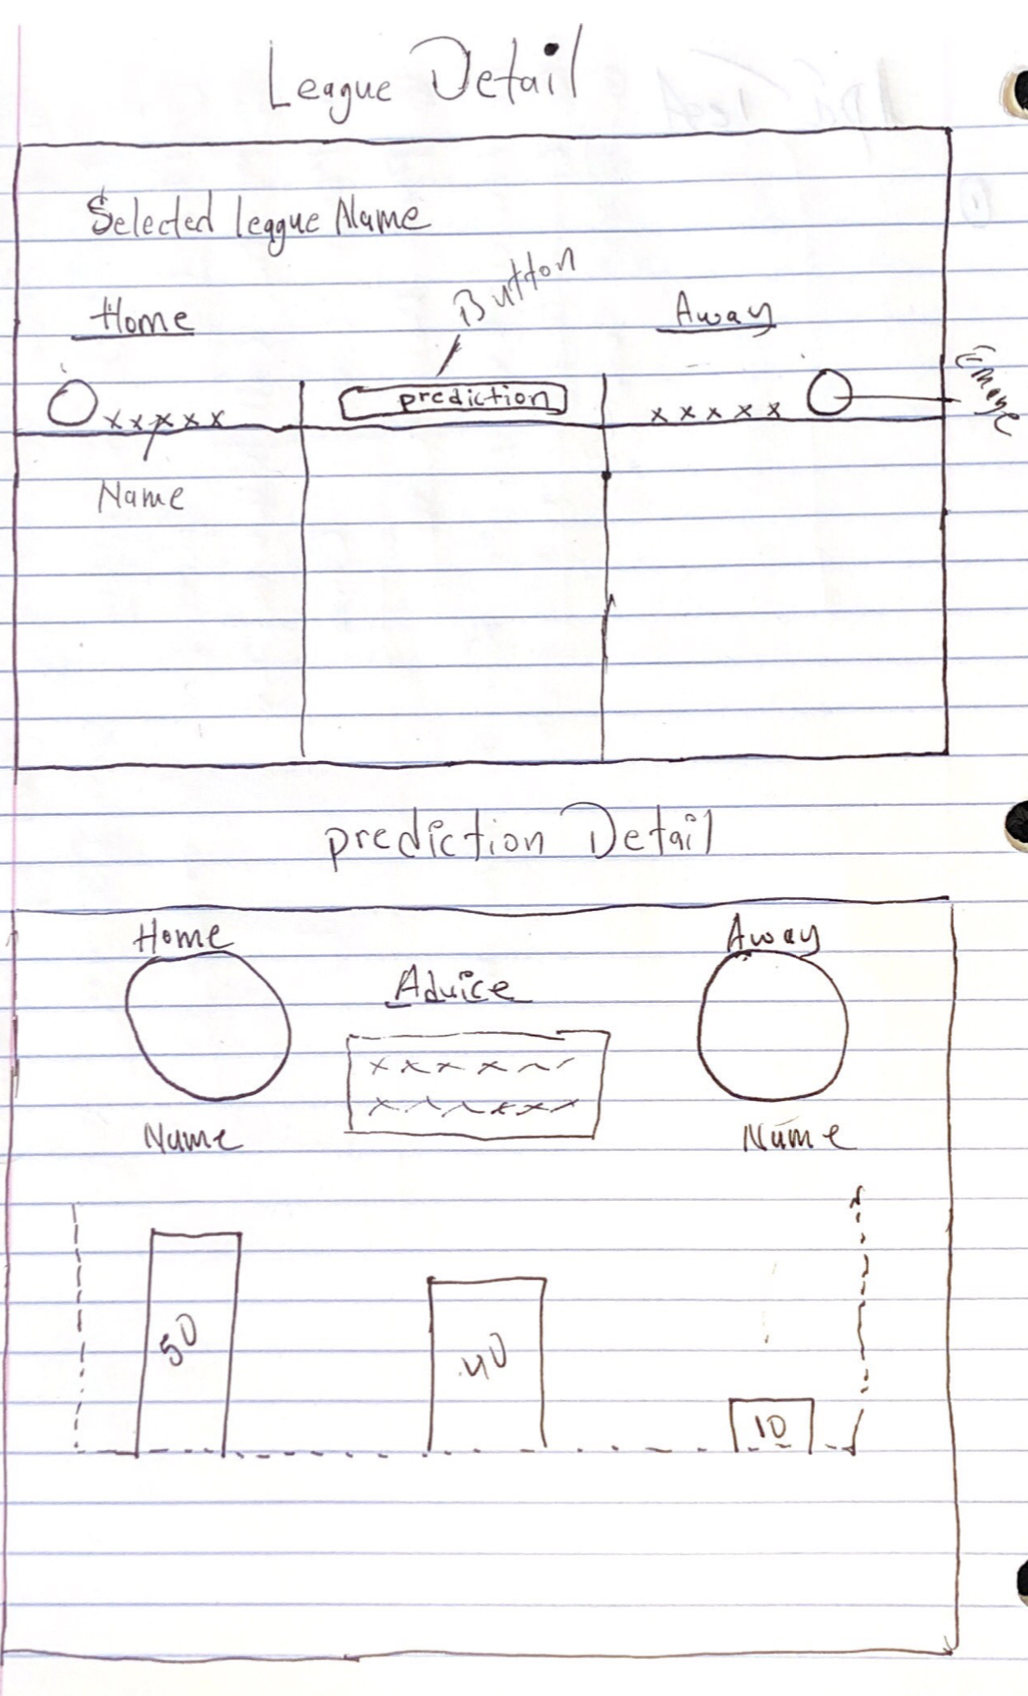 League Detail
Selected league Name
Button
Home
Away
prediction
xxxxx
xxxxx
Image
Name
prediction Detail
Home
Away
Advice
xxxx
xxx
Name
Name
50
40
10